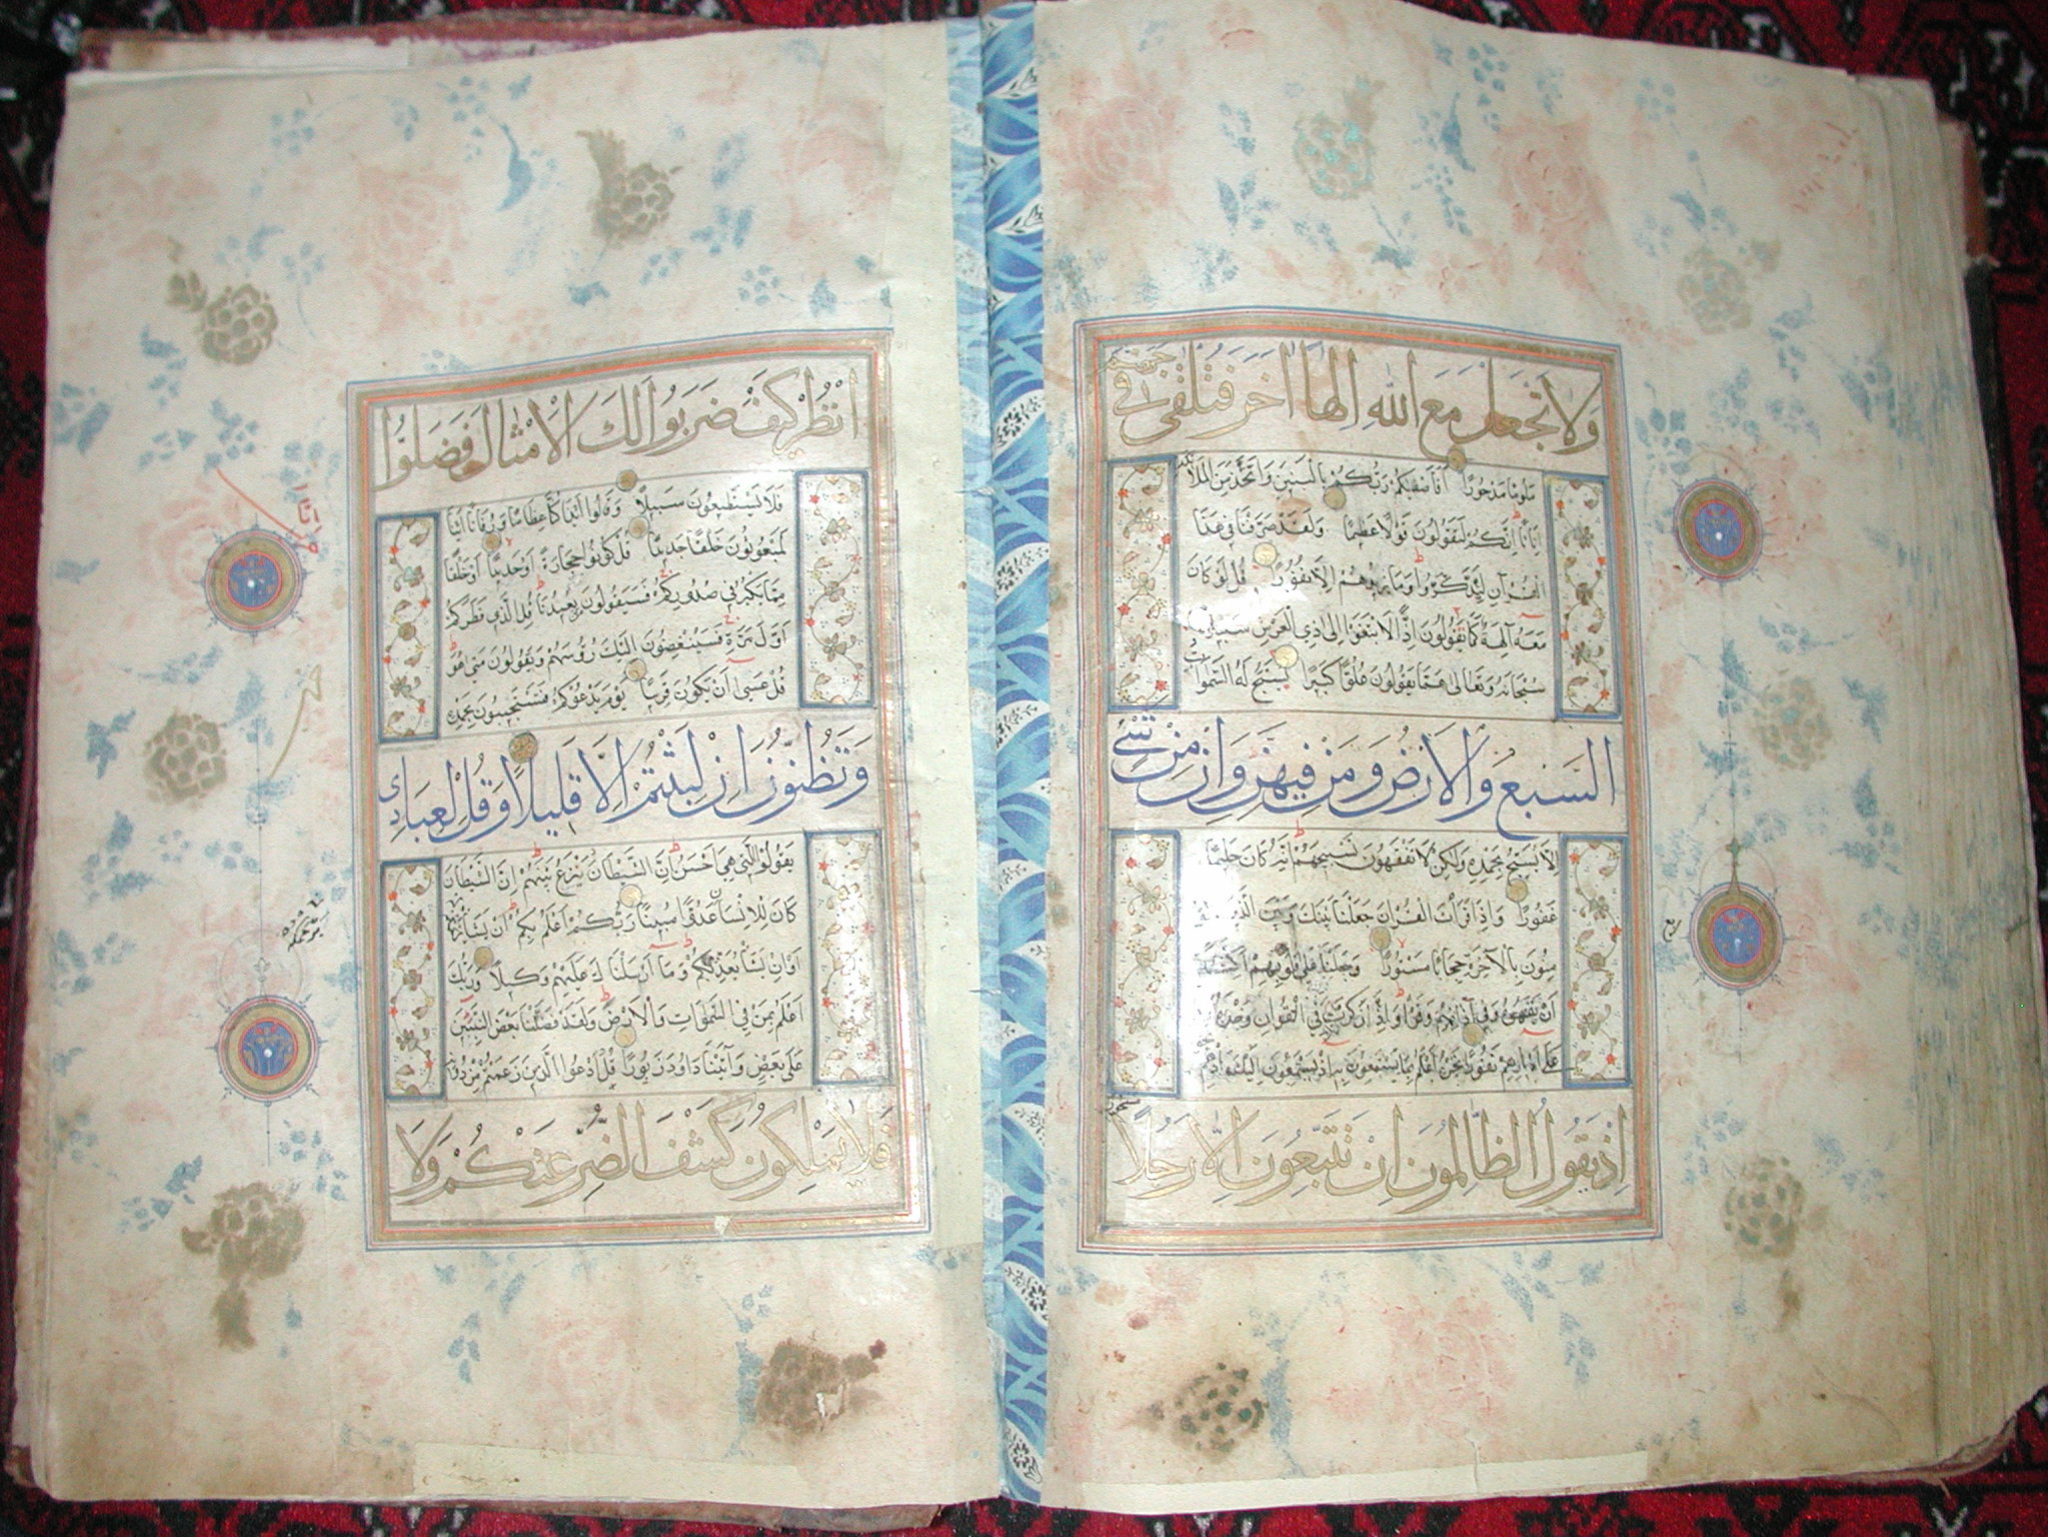 ولا تجعل مع الله الها اخر فتلقى في جهنم
ملوما مدحورا افاصفيكم ربكم بالبنين واتخذ من الملائكة
اناثا انكم لتقولون قولا عظيما ولقد صرفنا في هذا
القرآن ليذكروا وما يزيدهم الا نفورا قل لو كان
معه آلهة كما يقولون اذا لابتغوا الى ذي العرش سبيلا
سبحانه وتعالى عما يقولون علوا كبيرا يسبح له السموات
السبع والارض ومن فيهن وان من شئ
الا يسبح بحمده ولكن لا تفقهون تسبيحهم انه كان حليما
غفورا واذا قرأت القرآن جعلنا بينك وبين الذين
منون بالآخرة حجابا مستورا وجعلنا على قلوبهم اكنة
ان يفقهوه وفي آذانهم وقرا واذا ذكرت ربك في القرآن وحده
على ادبارهم نفورا نحن اعلم بما يستمعون به اذ يستمعون اليك واذ هم
اذ يقول الظالمون ان تتبعون الا رجلا
مسحورا
ربع
انظر كيف ضربوا لك الامثال فضلوا
فلا يستطيعون سبيلا وقالوا ائذا كنا عظاما ورفاتا ائنا
لمبعوثون خلقا جديدا قل كونوا حجارة او حديدا او خلقا
مما يكبر في صدوركم فسيقولون من يعيدنا قل الذي فطركم
اول مرة فسينغضون اليك رؤسهم ويقولون متى هو
قل عسى ان يكون قريبا يوم يدعوكم فتستجيبون بحمده
وتظنون ان لبثتم الا قليلا وقل لعبادي
يقولوا التي هي احسن ان الشيطان ينزغ بينهم ان الشيطان
كان للانسان عدوا مبينا ربكم اعلم بكم ان يشأ يرحمكم
او ان يشأ يعذبكم وما ارسلناك عليهم وكيلا وربك
اعلم بمن في السموات والارض ولقد فضلنا بعض النبيين
على بعض وآتينا داود زبورا قل ادعوا الذين زعمتم من دونه
فلا يملكون كشف الضر عنكم ولا